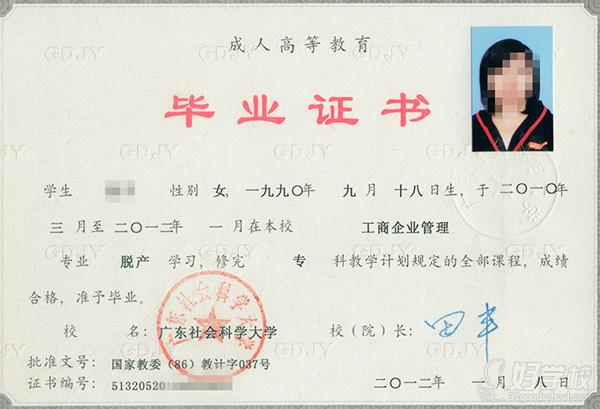 成人高等教育
毕业证书
学生 性别 女,一九九〇年 九 月 十八 日生,于 二〇一〇年
三 月至 二〇一二年 一 月在本校 工商企业管理
专业 脱产 学习,修完 专 科教学计划规定的全部课程,成绩
合格,准予毕业。
校 名:广东社会科学大学 校(院)长:田丰
批准文号:国家教委(86)教计字037号
证书编号:51320520
二〇一二年 一 月 八 日
广东社会科学大学
GDJY
好学校
91goodschool.com